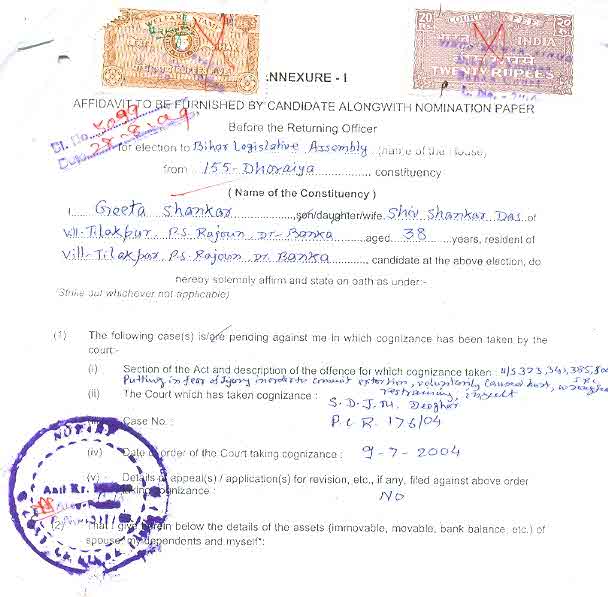 WELFARE STAMP
COURT FEE
20 Rs
20 Rs
INDIA
TWENTY RUPEES
ANNEXURE - I
AFFIDAVIT TO BE FURNISHED BY CANDIDATE ALONGWITH NOMINATION PAPER
Sl. No. 5099
Before the Returning Officer
for election to Bihar Legislative Assembly (name of the House)
from 155-Dhoraiya constituency
( Name of the Constituency )
I Geeta Shankar son/daughter/wife Shiv Shankar Das of
Vill-Tilakpur, P.S. Rajoun, Dt-Banka aged 38 years, resident of
Vill-Tilakpur, P.S. Rajoun, Dt. Banka candidate at the above election, do
hereby solemnly affirm and state on oath as under:-
(Strike out whichever not applicable)
(1) The following case(s) is/are pending against me in which cognizance has been taken by the
court:-
(i) Section of the Act and description of the offence for which cognizance taken : U/S 323, 341, 385,
Putting in fear of injury in order to commit extortion, voluntarily caused hurt,
restraining, insult
(ii) The Court which has taken cognizance :
S.D.J.M. Deoghar
Case No. : P.C.R. 176/04
(iv) Date of order of the Court taking cognizance : 9-7-2004
(v) Details of appeal(s) / application(s) for revision, etc., if any, filed against above order
taking cognizance : NO
NOTARY
Anil Kr.
(2) That I give herein below the details of the assets (immovable, movable, bank balance, etc.) of
spouse, my dependents and myself*: